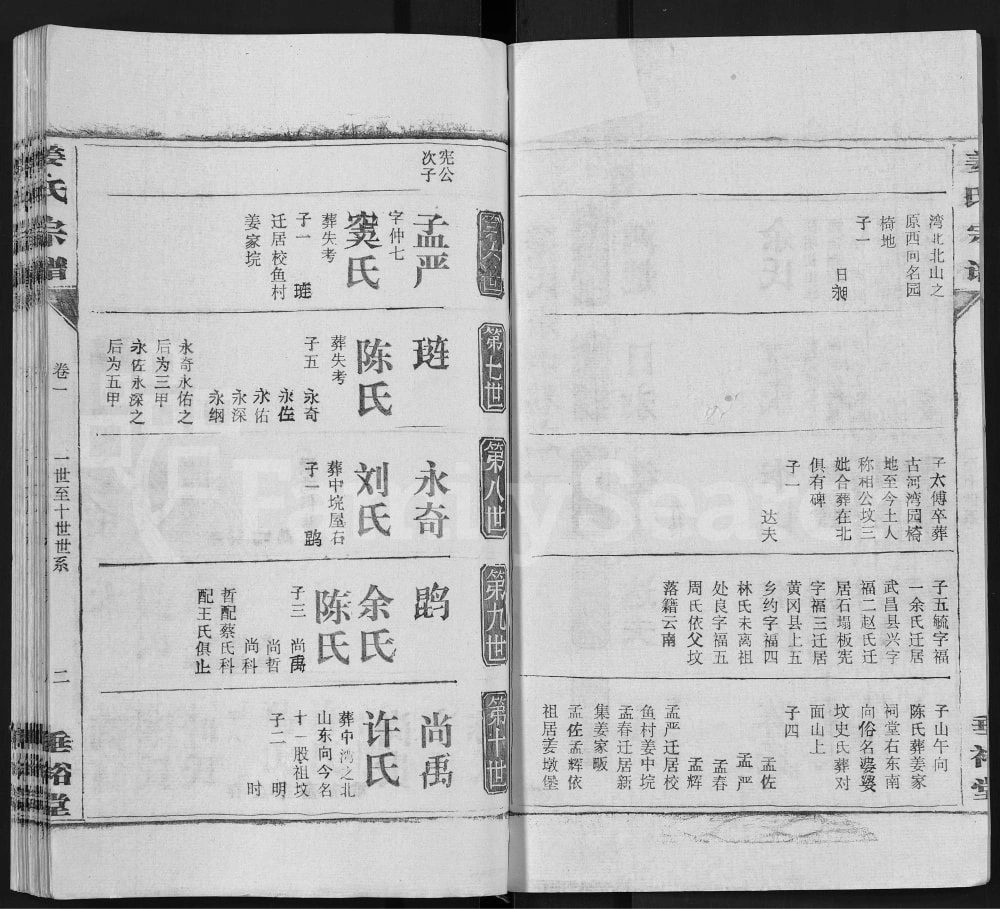 姜氏宗谱
湾北北山之
原西向名园
椅地
子一
日昶
子太傅卒葬
古河湾园椅
地至今土人
称相公坟三
妣合葬在北
俱有碑
子一
达夫
子五毓字福
一余氏迁居
武昌县兴字
福二赵氏迁
居石塌板宪
字福三迁居
黄冈县上五
乡约字福四
林氏未离祖
处良字福五
周氏依父坟
落籍云南
子山午向
陈氏葬姜家
祠堂右东南
向俗名婆婆
坟史氏葬对
面山上
子四
孟佐
孟严
孟春
孟辉
孟严迁居校
鱼村姜中垸
孟春迁居新
集姜家畈
孟佐孟辉依
祖居姜墩堡
垂裕堂
第六世
宪公
次子
孟严
字仲七
窦氏
葬失考
子一
琏
迁居校鱼村
姜家垸
第七世
琏
陈氏
葬失考
子五
永奇
永佐
永佑
永深
永纲
永奇永佑之
后为三甲
永佐永深之
后为五甲
第八世
永奇
刘氏
葬中垸屋石
子一
鹍
第九世
鹍
余氏
陈氏
子三
尚禹
尚哲
尚科
哲配蔡氏科
配王氏俱止
第十世
尚禹
许氏
葬中湾之北
山东向今名
十一股祖坟
子二
明
时
姜氏宗谱
卷一
一世至十世世系
二
垂裕堂
FamilySearch